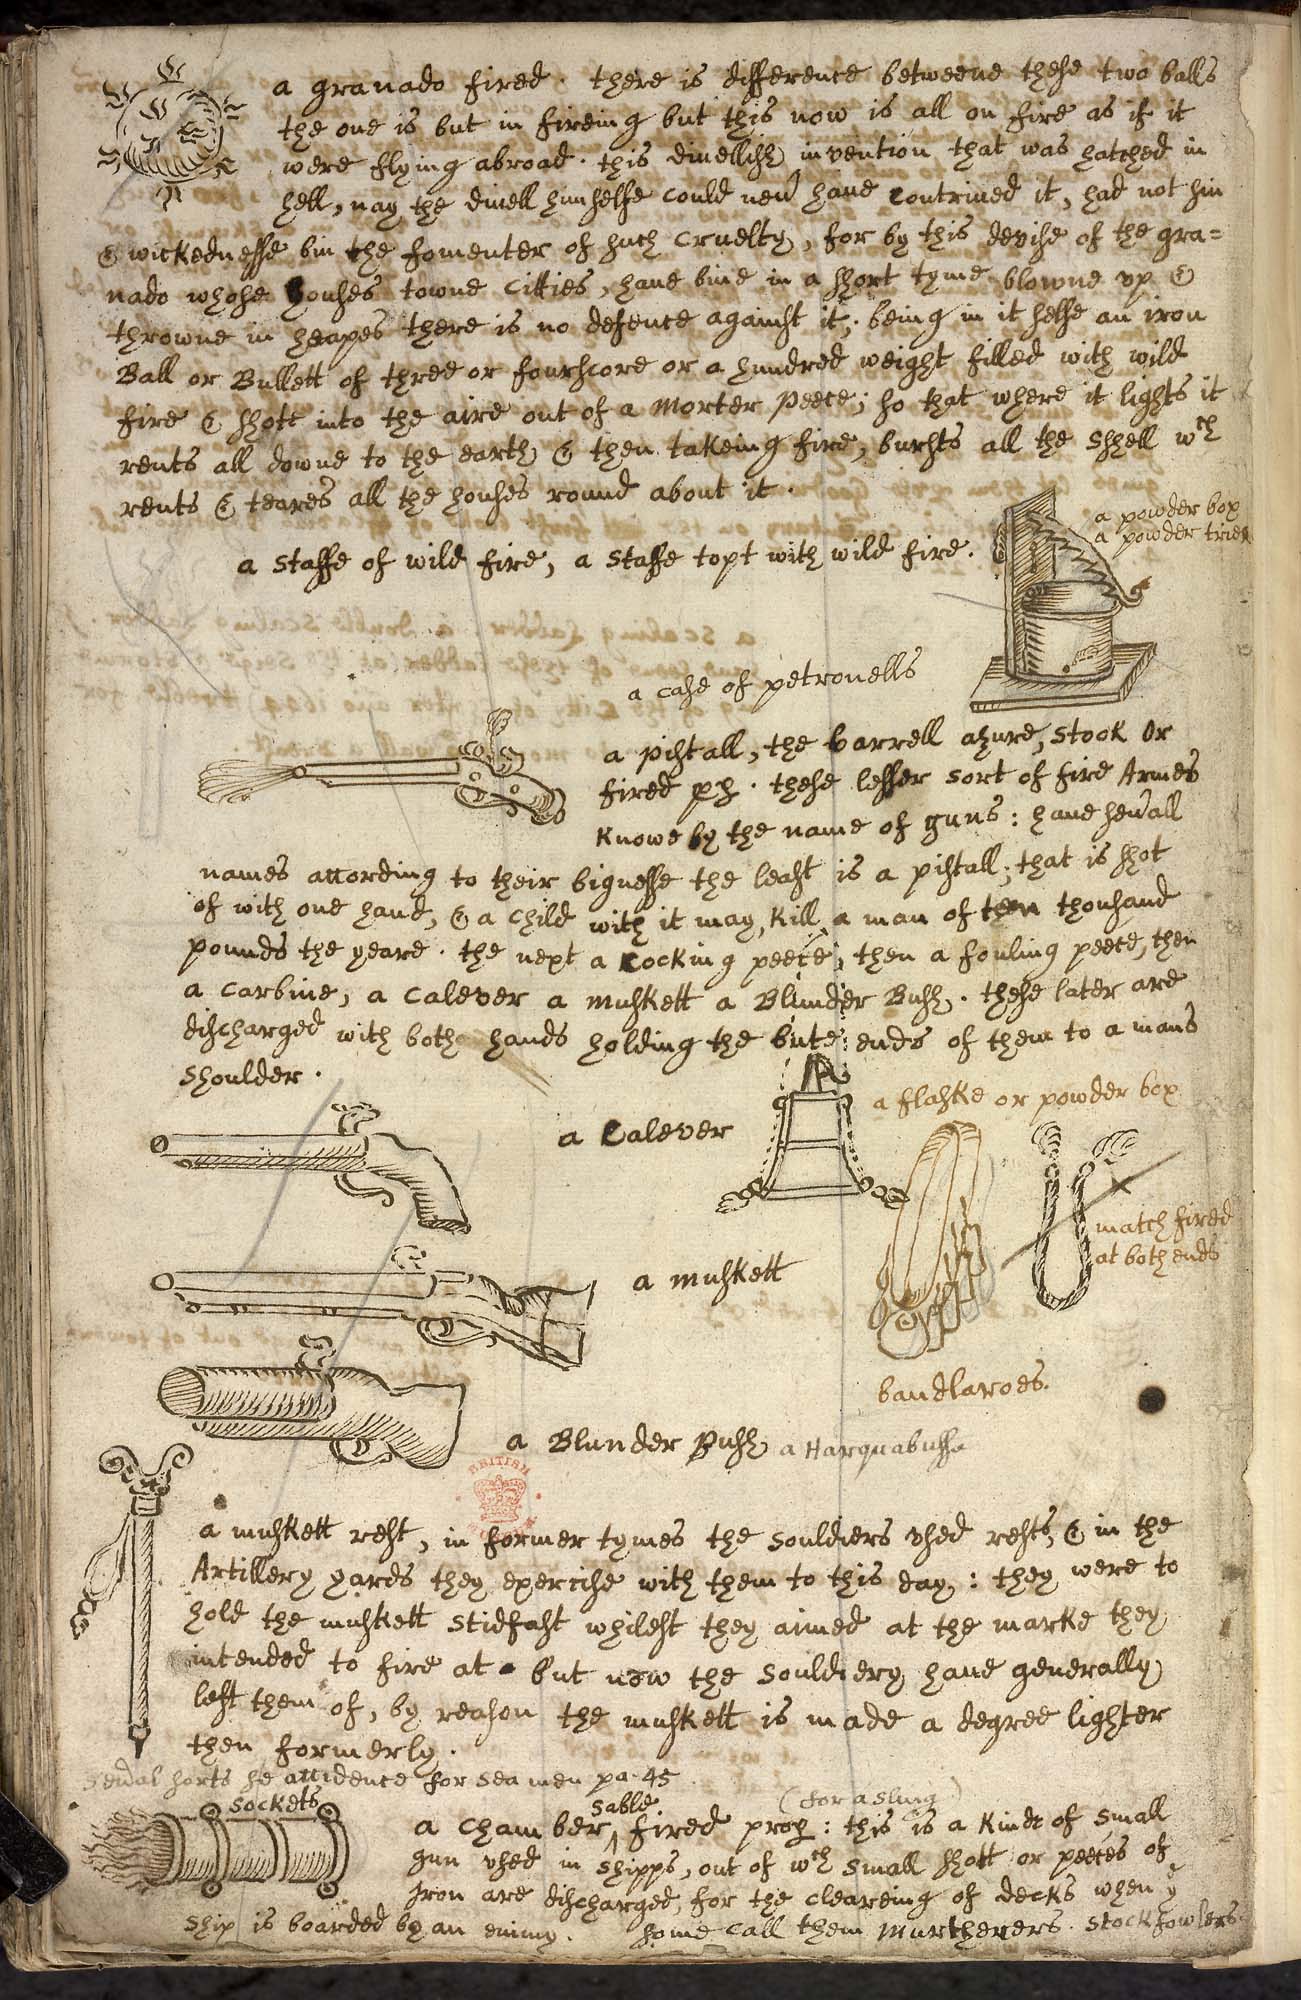 a granado fired · there is difference betweene these two balls
the one is but in fireing but this now is all on fire as if it
were flying abroad · this divellish invention that was hatched in
hell, nay the divell himselfe could nev̄ haue contriued it, had not sin
& wickednesse bin the fomenter of such cruelty, for by this devise of the gra=
nado whose houses towne citties, haue bine in a short tyme blowne vp &
throwne in heapes there is no defence against it; being in it selfe an iron
Ball or Bullett of three or fourscore or a hundred weight filled with wild
fire & shott into the aire out of a Morter peece; so that where it lights it
rents all downe to the earth & then takeing fire, bursts all the shell wch
rents & teares all the houses round about it ·
a powder box
a powder trier
a staffe of wild fire, a staffe topt with wild fire ·
a case of petronells
a pistall, the barrell azure, stock Or
fired pp · these lesser sort of fire Armes
Knowe by the name of guns : haue sev̄all
names according to their bignesse the least is a pistall; that is shot
of with one hand, & a child with it may kill a man of ten thousand
pounds the yeare · the next a cocking peece; then a fouling peece, then
a carbine, a calever a muskett a Blunder Bush · these later are
discharged with both hands holding the bute ends of them to a mans
shoulder ·
a flaske or powder box
a Calever
match fired
at both ends
a muskett
bandlaroes.
a Blunder Bush a Harquabusse
BRITISH
a muskett rest, in former tymes the souldiers vsed rests, & in the
Artillery yards they exercise with them to this day : they were to
hold the muskett stidfast whilest they aimed at the marke they
intended to fire at · but now the souldiery haue generally
left them of, by reason the muskett is made a degree lighter
then formerly ·
sev̄al sorts se accidence for sea men pa · 45
sockets
sable (for a sling)
a Chamber ^ fired prop : this is a Kinde of small
gun vsed in shipps, out of wch small shott or peeces of
Iron are discharged, for the cleareing of decks when ye
ship is boarded by an enimy. some call them Murtherers · stockfowlers